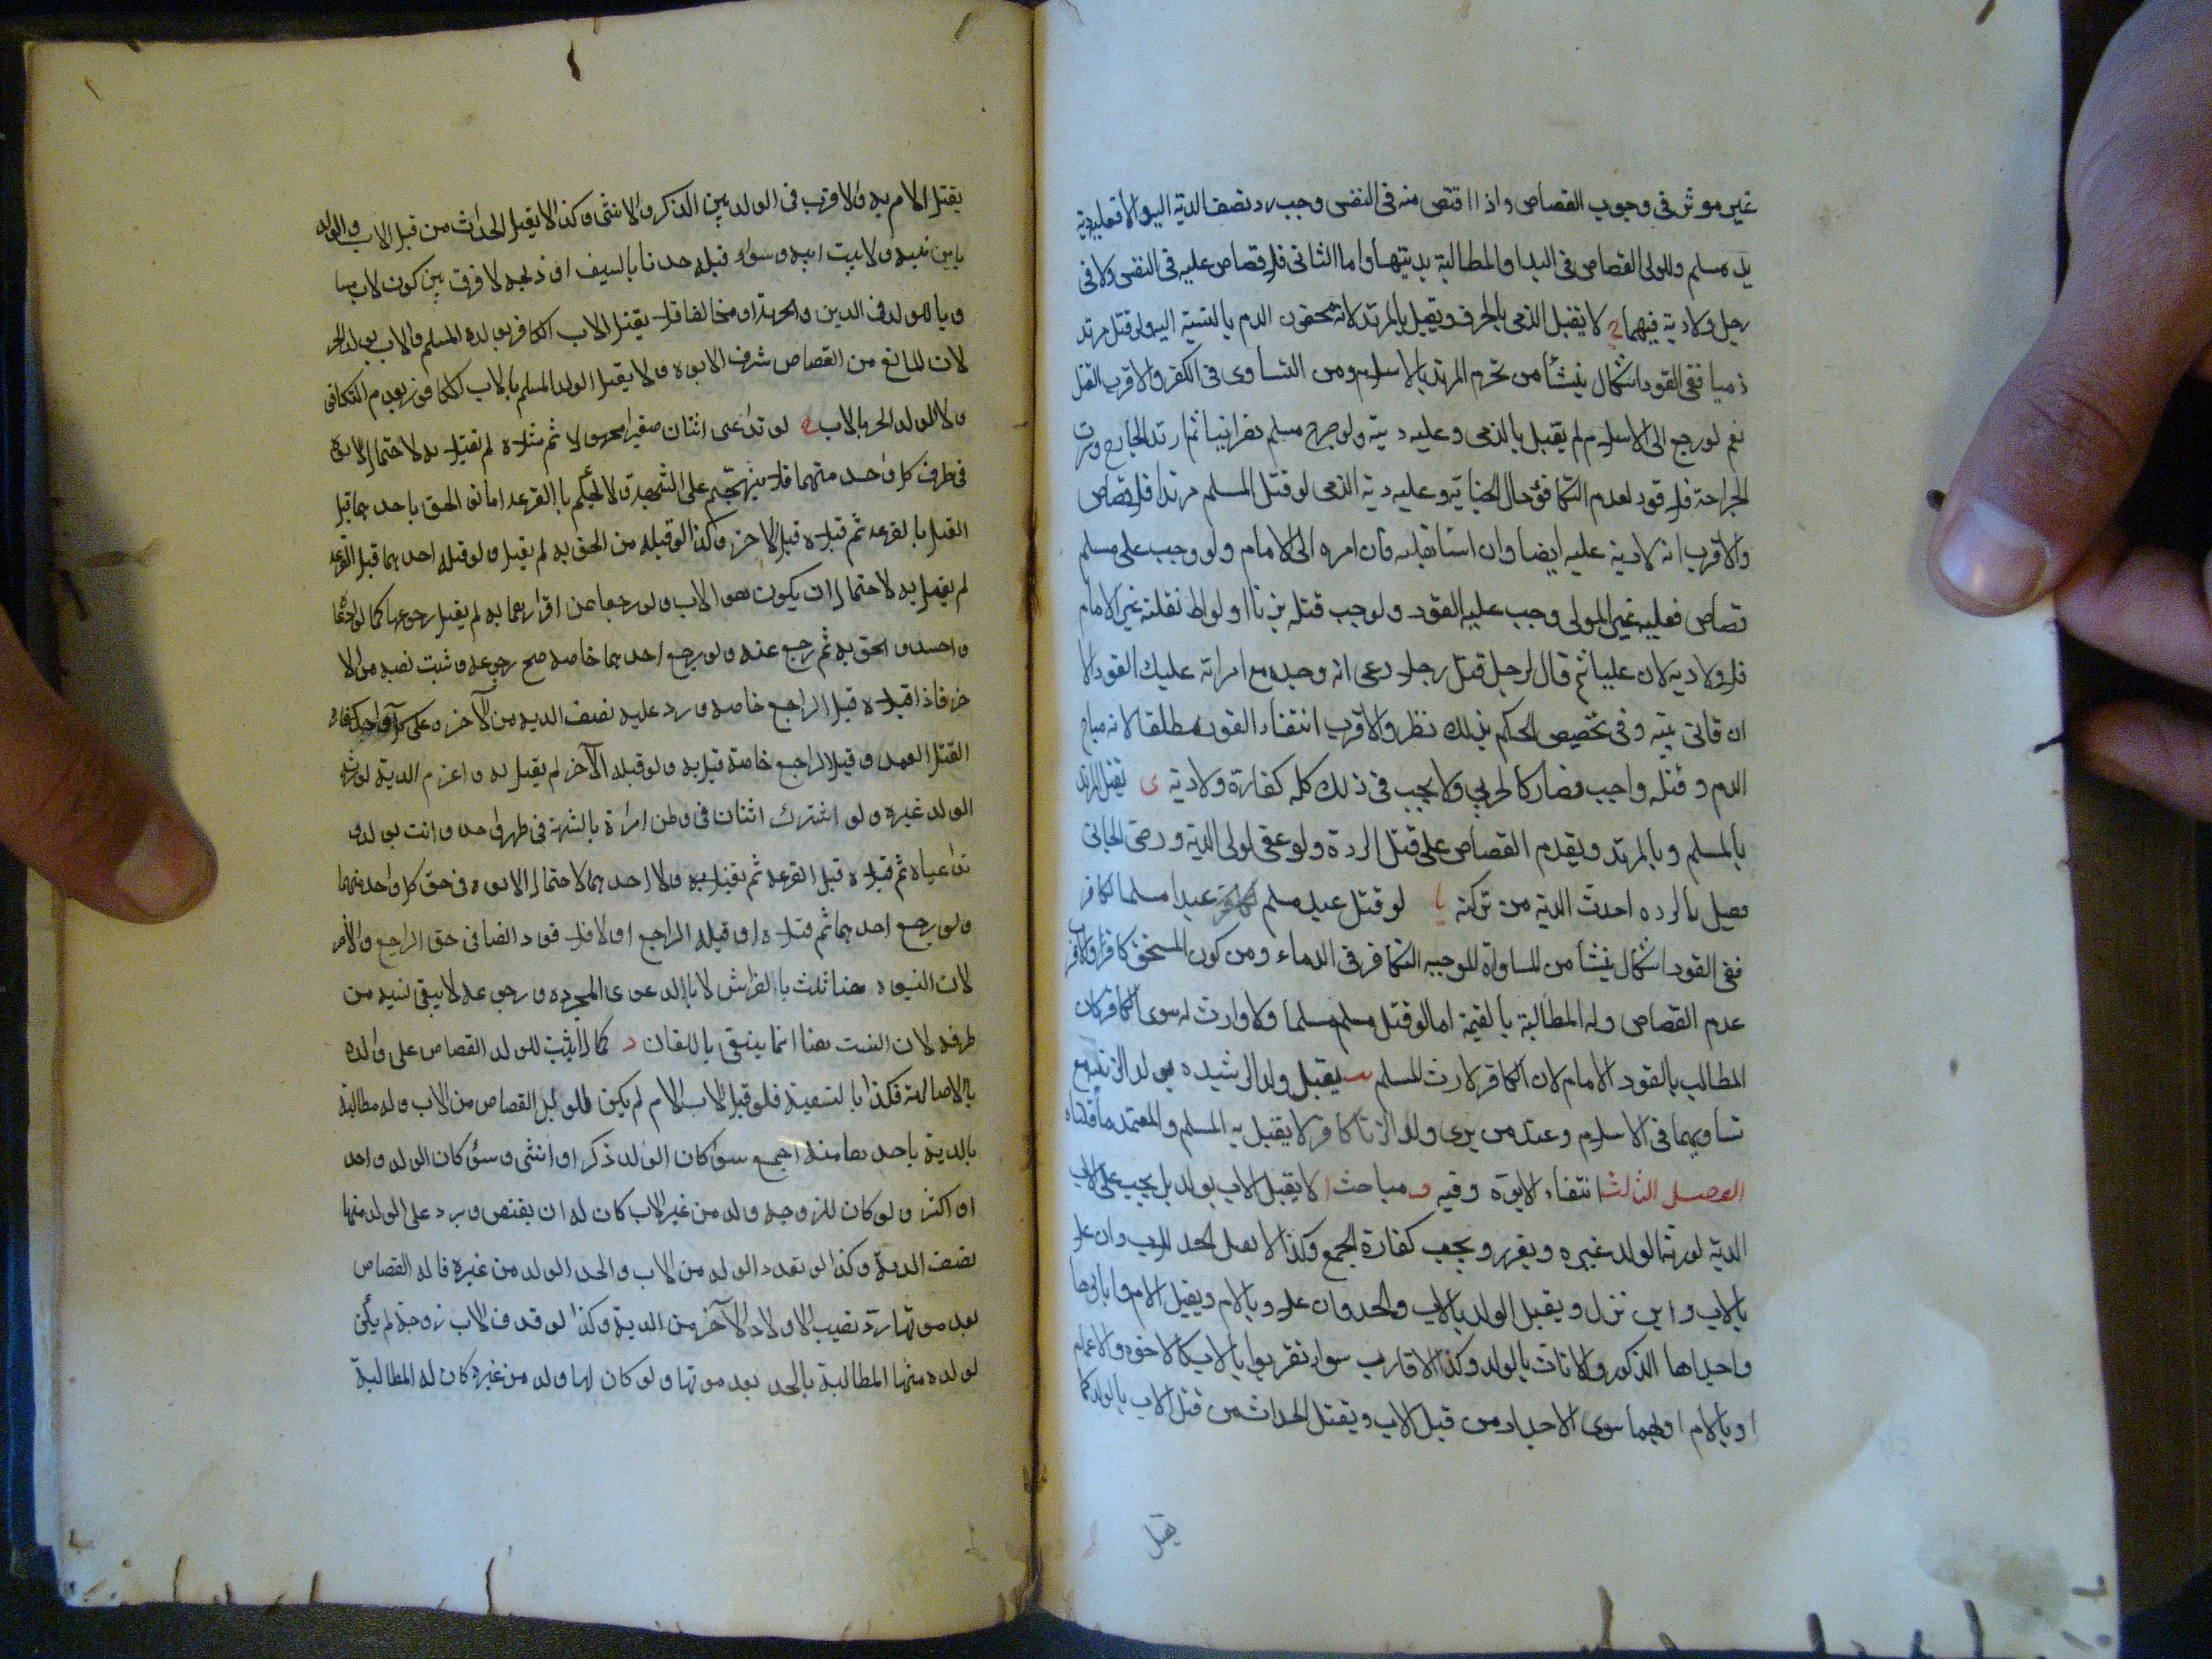 غير موثر في وجوب القصاص واذا اقتص منه في النفس وجب رد نصف الدية اليه والا فعليه دية
يد مسلم وللولي القصاص في اليد او المطالبة بديتها واما الثاني فلا قصاص عليه في النفس ولا في
رجل ولا دية فيهما ح لا يقتل الذمي بالحربي ويقتل بالمرتد لانه محقون الدم بالنسبة اليه ولو قتل مرتد
ذميا ففي القود اشكال ينشأ من تحرم المرتد بالاسلام ومن التساوي في الكفر والاقرب القتل
نعم لو رجع الى الاسلام لم يقتل بالذمي وعليه ديته ولو جرح مسلم نصرانيا ثم ارتد الجارح وسرت
الجراحة فلا قود لعدم التكافؤ حال الجناية وعليه دية الذمي لو قتل المسلم مرتدا فلا قصاص
والاقرب انه لا دية عليه ايضا وان اساء بقتله فان امره الى الامام ولو وجب على مسلم
قصاص فقتله غير الولي وجب عليه القود ولو وجب قتله بزنا او لواط فقتله غير الامام
فلا ولا دية لان عليا ثم قال لرجل قتل رجلا دعى انه وجده مع امراته عليك القود الا
ان تاتي ببينة وفي تخصيص الحكم بذلك نظر والاقرب انتفاء القود مطلقا لانه مباح
الدم وقتله واجب فصار كالحربي ولا يجب في ذلك كله كفارة ولا دية ى يقتل المرتد
بالمسلم وبالمرتد ويقدم القصاص على قتل الردة ولو عفى الولى الدية ورضى الجاني
فصل بالرده اخذت الدية من تركته يا لو قتل عبد مسلم عبدا مسلما لكافر
ففي القود اشكال ينشأ من المساواة الموجبه التكافو في الدماء ومن كون المستحق كافرا والاقرب
عدم القصاص وله المطالبة بالقيمة اما لو قتل مسلم مسلما ولا وارث له سوى الكافر كان
المطالب بالقود الامام لان الكافر لا يرث المسلم يب يقتل ولد الرشيده بولد الزنيه مع
تساويهما في الاسلام وعند من يرى ولد الزنا كافر لا يقتل به المسلم والمعتمد ما قلناه
الفصل الثالث انتفاء الابوة وفيه و مباحث ا لا يقتل الاب بولده بل يجب على الاب
الدية لورثة الولد غيره ويعزر ويجب كفارة الجمع وكذا لا يقتل الجد للاب وان علا
بالاب وابن نزل ويقتل الولد بالاب والجد وان علا وبالام ويقتل الام وآباؤها
واجدادها الذكور والاناث بالولد وكذا الاقارب سواء تقربوا بالاب كالاخوه والاعمام
او بالام او بهما سوى الاجداد من قبل الاب ويقتل الجدات من قبل الاب بالولد كما
يقتل
يقتل الام به والاقرب في الولد بين الذكر والانثى وكذا لا يقتل الجدات من قبل الاب والولد
بابن بنيه ولا ببنت ابيه وسواء قتله حدنا بالسيف او ذبحه لا فرق بين كون الاب مساو
ويا للولد في الدين والحرية او مخالفا فلا يقتل الاب الكافر بولده المسلم والاب بولد الحر
لان المانع من القصاص شرف الابوه ولا يقتل الولد المسلم بالاب الكافر لعدم التكافؤ
ولا الولد الحر بالاب ج لو تداعى اثنان صغيرا مجهولا ثم قتلاه لم يقتلا به لاحتمال الابوة
في طرف كل واحد منهما فلا يتهجم على الشبهة ولا يحكم بالقرعه اما لو الحق باحدهما قبل
القتل بالقرعه ثم قتلاه قتل الاخر وكذا لو قتله من الحق به لم يقتل ولو قتله احدهما قبل القرعه
لم يقتل به لاحتمال ان يكون هو الاب ولو رجعا عن اقرارهما به لم يقبل رجوعهما كما لو ادعا
واحد والحق به ثم رجع عنه ولو رجع احدهما خاصه صح رجوعه وثبت نسبه من الا
خر فاذا قتلاه قتل الراجع خاصه ورد عليه نصف الديه من الآخر وعلى كل واحد كفاره
القتل العمد وقتل الراجع خاصة قتل به ولو قتله الآخر لم يقتل به واغرم الدية لورثه
الولد غيره ولو اشترك اثنان في وطئ امراة بالشبهة في طهر واحد واتت بولد و
تداعياه ثم قتلاه قبل القرعه ثم يقتلا به ولا احدهما لاحتمال الابوه في حق كل واحد منهما
ولو رجع احدهما ثم قتلاه او قتله الراجع او لا فلا قود ايضا في حق الراجع والآخر
لان البنوه هنا ثبت بالفراش لا بالدعوى المجرده ورجوعه لا ينفى نسبه من
طرفه لان النسب هنا انما ينتفى باللعان د كما لا يثبت للولد القصاص على والده
بالاصالة فكذا بالتبعية فلو قتل الاب الام لم يكن للولد القصاص من الاب وله مطالبة
بالدية باحدهما منه اجمع سوا كان الولد ذكر او انثى وسوا كان الولد واحد
او اكثر ولو كان للزوجه ولد من غير الاب كان له ان يقتص ويرد على الولد منها
نصف الدية وكذا لو تعدد الولد من الاب واتحد الولد من غيره فله القصاص
بعد موتها رد نصيب الاولاد الآخر من الدية وكذا لو قذف الاب زوجته لم يكن
لولده منها المطالبة بالحد بعد موتها ولو كان لها ولد من غيره كان له المطالبة